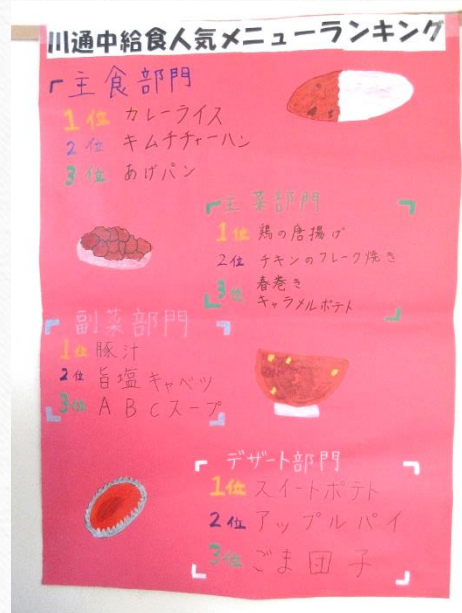 川通中給食人気メニューランキング
「主食部門
1位 カレーライス
2位 キムチチャーハン
3位 あげパン
「主菜部門
1位 鶏の唐揚げ
2位 チキンのフレーク焼き
3位 春巻き
キャラメルポテト
副菜部門
1位 豚汁
2位 旨塩キャベツ
3位 ABCスープ
デザート部門
1位 スイートポテト
2位 アップルパイ
3位 ごま団子